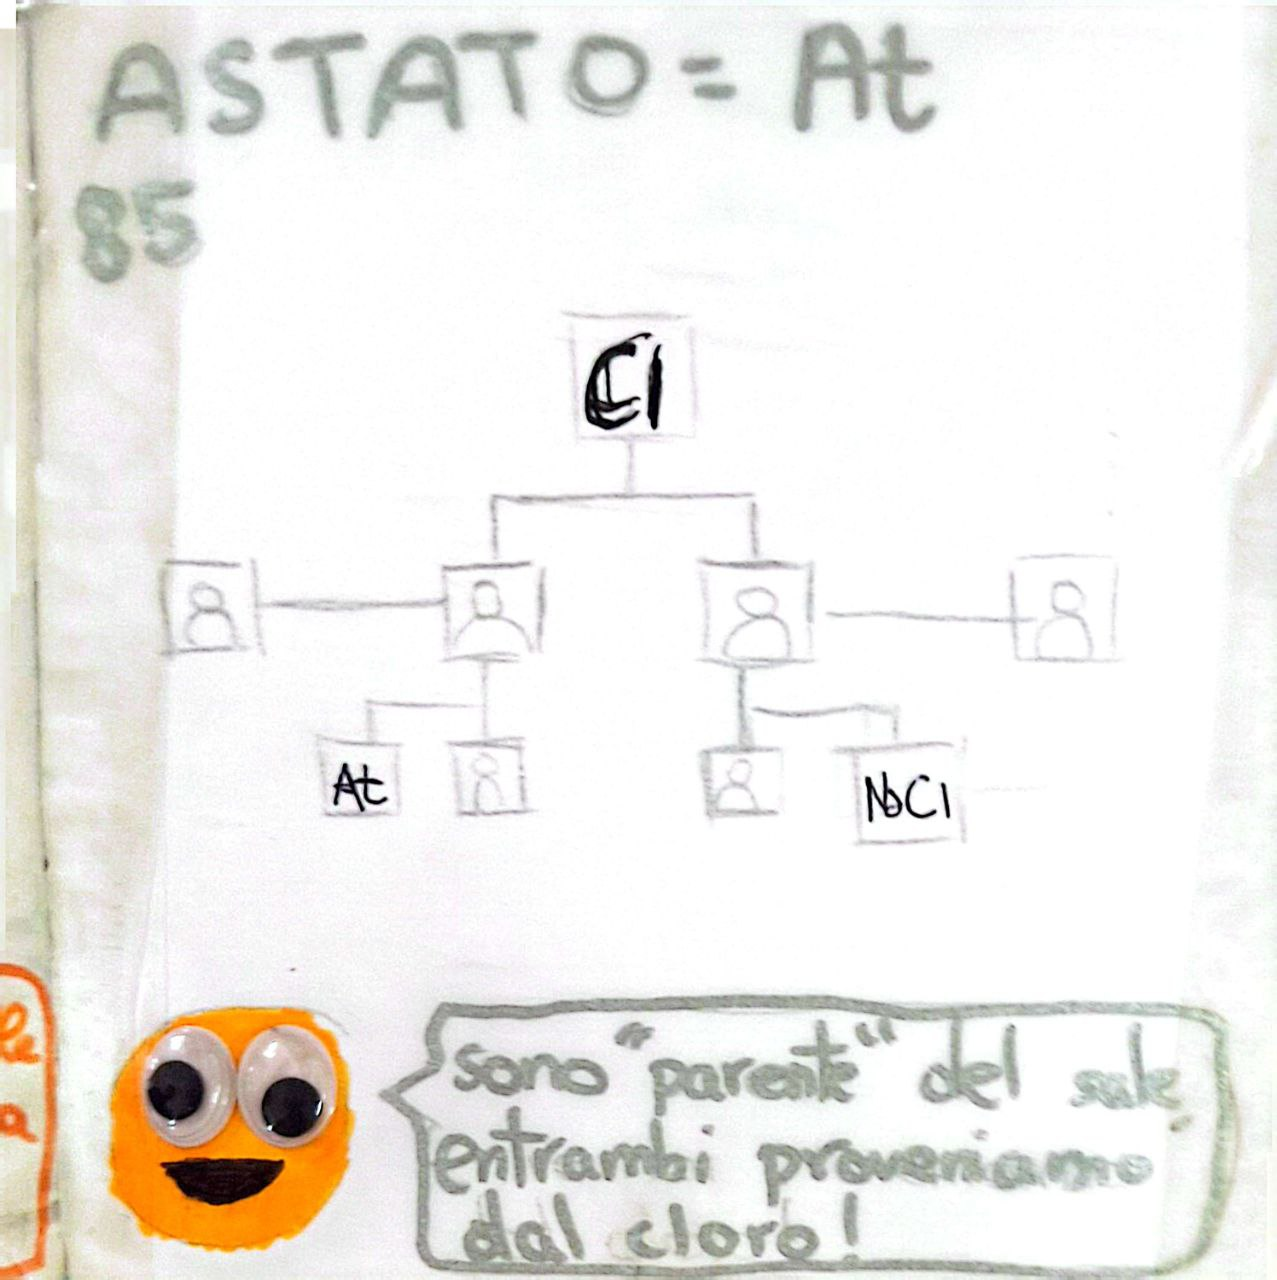 ASTATO = At
85
Cl
At
NaCl
sono "parente" del sale
entrambi proveniamo
dal cloro!
le
a